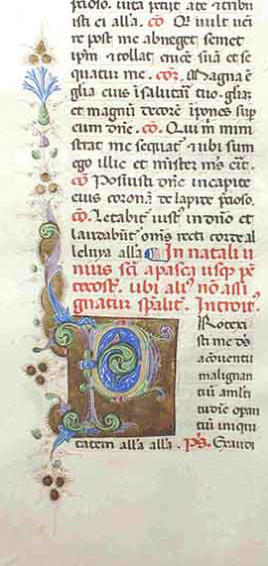 ptioso. uita petiit a te & tribu
isti ei alla. co. Qi uult ueni
re post me abneget semet
ipm & tollat cruce sua et se
quatur me. cor. Magna e
glia eius i salutari tuo. glia
et magnu decore ipones sup
eum dne. co. Qui m mini
strat me sequat & ubi sum
ego illic et minister ms erit.
co Posuisti dne in capite
eius corona de lapite ptioso.
co. Letabit iust in dno et
laudabunt oms recti corde al
leluya alla In natali u
nius sci a pasca usqp pe
tecost. ubi ali no assi
gnatur spalit. Introit.
Rotexi
sti me ds
a couentu
malignan
tiu amltitu
tudie opan
tiu iniqui
tatem alla alla. ps. Exaudi